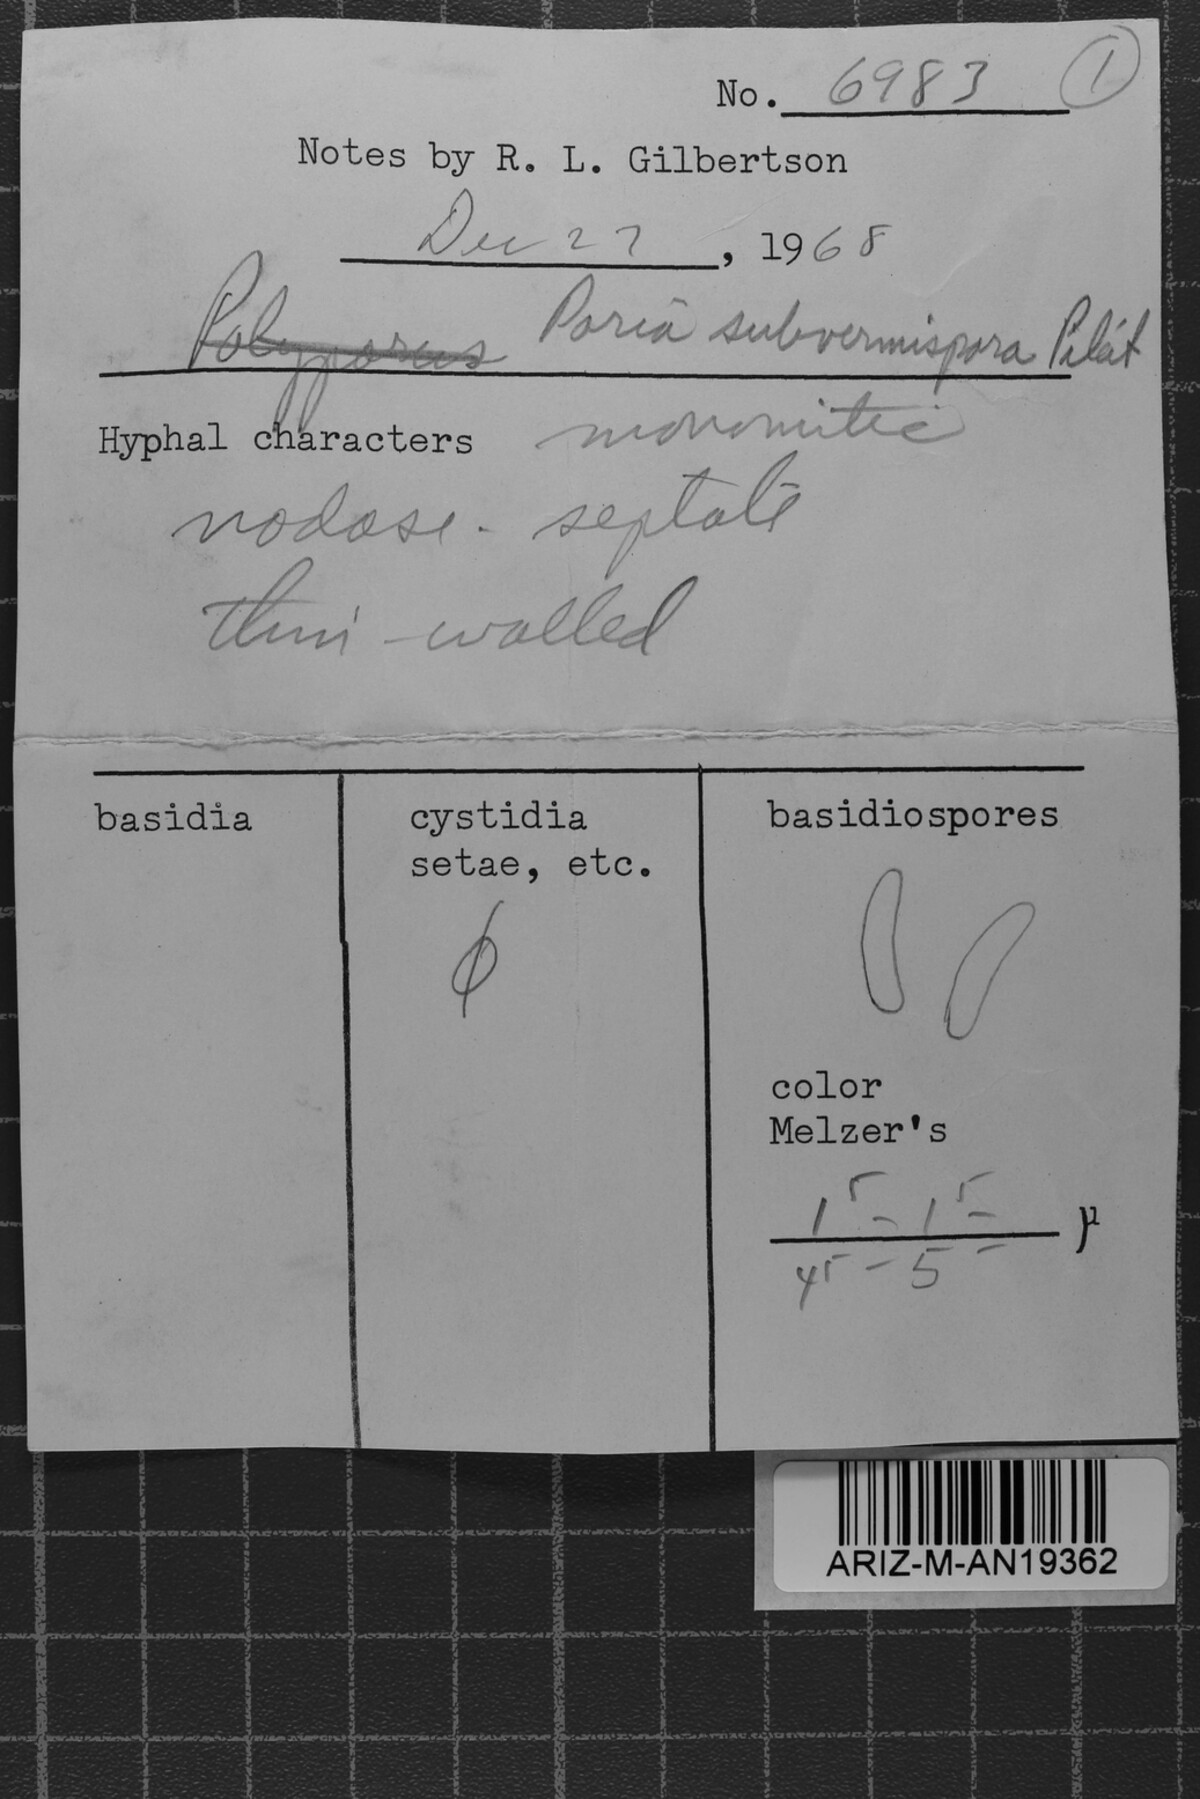 No. 6983 1
Notes by R. L. Gilbertson
Dec 27, 1968
Polyporus Poria subvermispora Pilát
Hyphal characters monomitic
nodose-septate
thin-walled
basidia
cystidia
setae, etc.
ϕ
basidiospores
color
Melzer's
1⁵ - 1⁵ µ
4⁵ - 5
ARIZ-M-AN19362